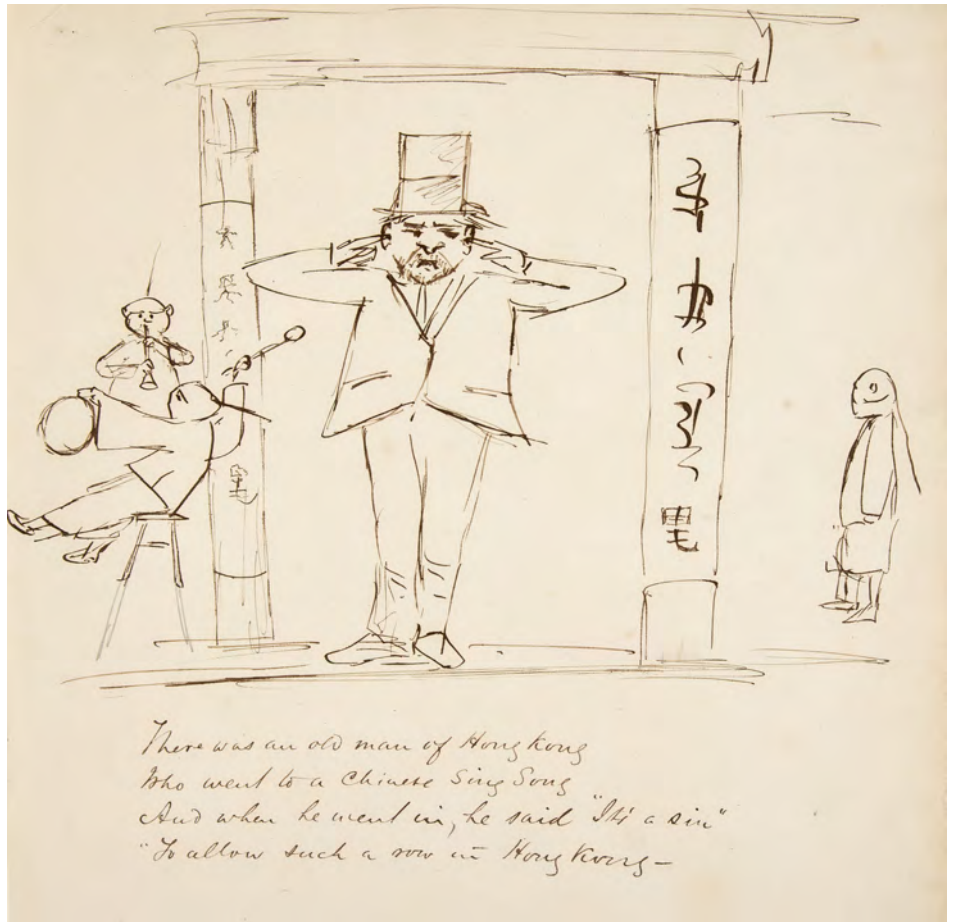 There was an old man of Hong Kong
Who went to a Chinese Sing Song
And when he went in, he said "It's a sin"
"To allow such a row in Hong Kong—